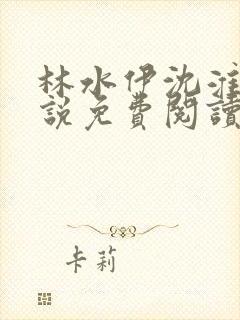 林水伊沈淮
說免費閱讀
卡莉